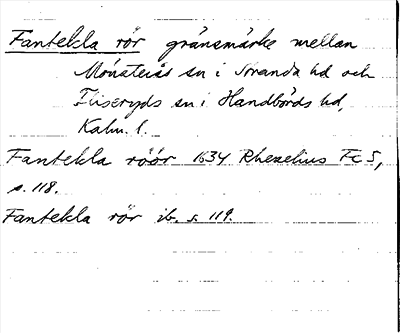 Fantekla rör gränsmärke mellan
Mönsterås sn i Stranda hd och
Fliseryds sn i Handbörds hd,
Kalm. l.
Fantekla röör 1634 Rhezelius Fc 5,
s. 118.
Fantekla rör ib. s. 119.